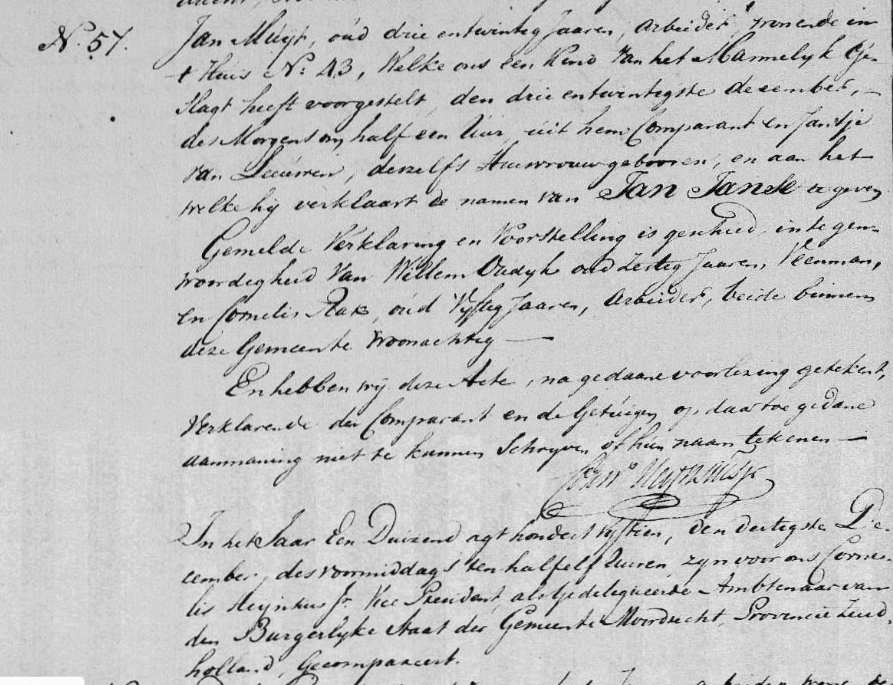 N.º 57.
Jan Muyt, oud drie entwinteg Jaaren, arbeider, wonende in
't Huis N.º 43, Welke ons een Kind van het Mannelyk Ge-
slagt heeft voorgesteld, den drie entwintegste december, –
des Morgens om half een Uur, uit hem Comparant en Jantje
van Leeuwen, deszelfs Huisvrouw gebooren, en aan het
welke hy verklaart de namen van Jan Janse te geven
Gemelde Verklaring en Voorstelling is geschied, in tegen-
woordigheid Van Willem Oudyk oud Zesteg Jaaren, Veenman,
en Cornelis Rak, oud Vyfteg Jaaren, Arbeider, beide binnen
deze Gemeente Woonachteg —
En hebben wy deze Acte, na gedaane voorlezing getekent,
Verklarende de Comparant en de Getuigen op daartoe gedane
aanmaning niet te kunnen Schryven of hun naam tekenen —
In het Jaar Een Duizend agt hondert vyftien, den dertegste De-
cember, des voormiddags ten half elf Uuren, zyn voor ons Corne-
lis Meynhus Jr. Vice President, als Gedelegueerde Ambtenaar van
den Burgerlyke Staat der Gemeente Moordrecht, Provincie Zuid-
holland, Gecompareert.